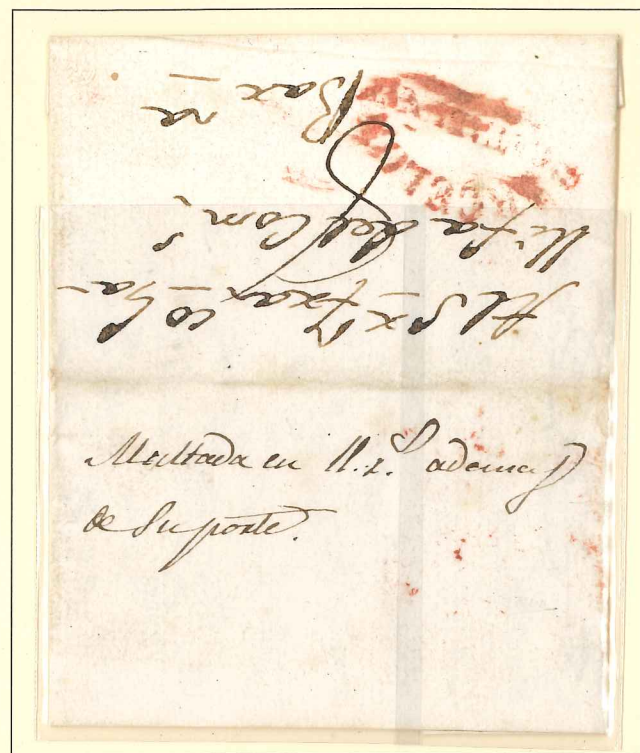 Al Sr Franco Ga-
llifa del Com.
Barna
Multada en 11. rs ademas
de Su porte.